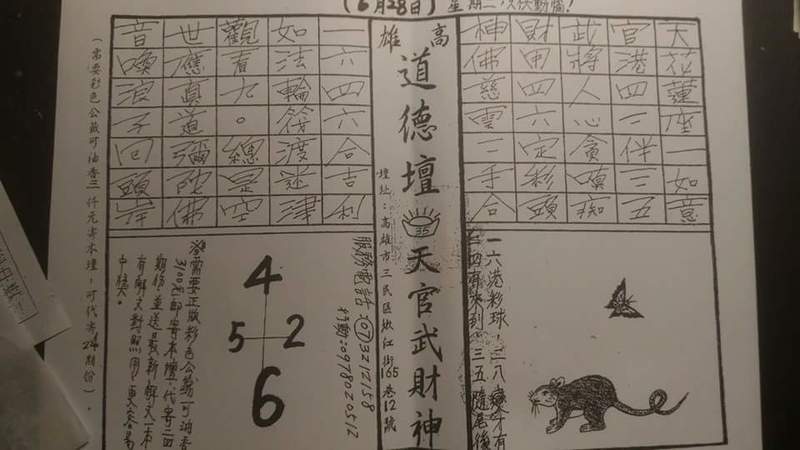 (6月28日) 星期二
天花蓮座一如意
官港四二伴三五
武將人心貪嗔痴
財甲四六定彩頭
神佛慈雲二手合
一六港彩球,二八
四齊來到 三五隨尾後
高雄
道德壇
35
天官武財神
壇址:高雄市三民區嫩江街165巷12號
服務電話:(07)3212158
行動:0978020512
一六四六合吉利
如法輪筏渡迷津
觀看九。總是空
世應真道彌陀佛
音喚浪子回頭岸
4
5 2
6
※需要正版彩色公載可油香
3100元郵寄本壇,代寄三四
期份,並送最新解文一本
有解文對照用,更容易
中獎。
(需要彩色公載可油香三仟元寄本壇,可代寄24期份)。